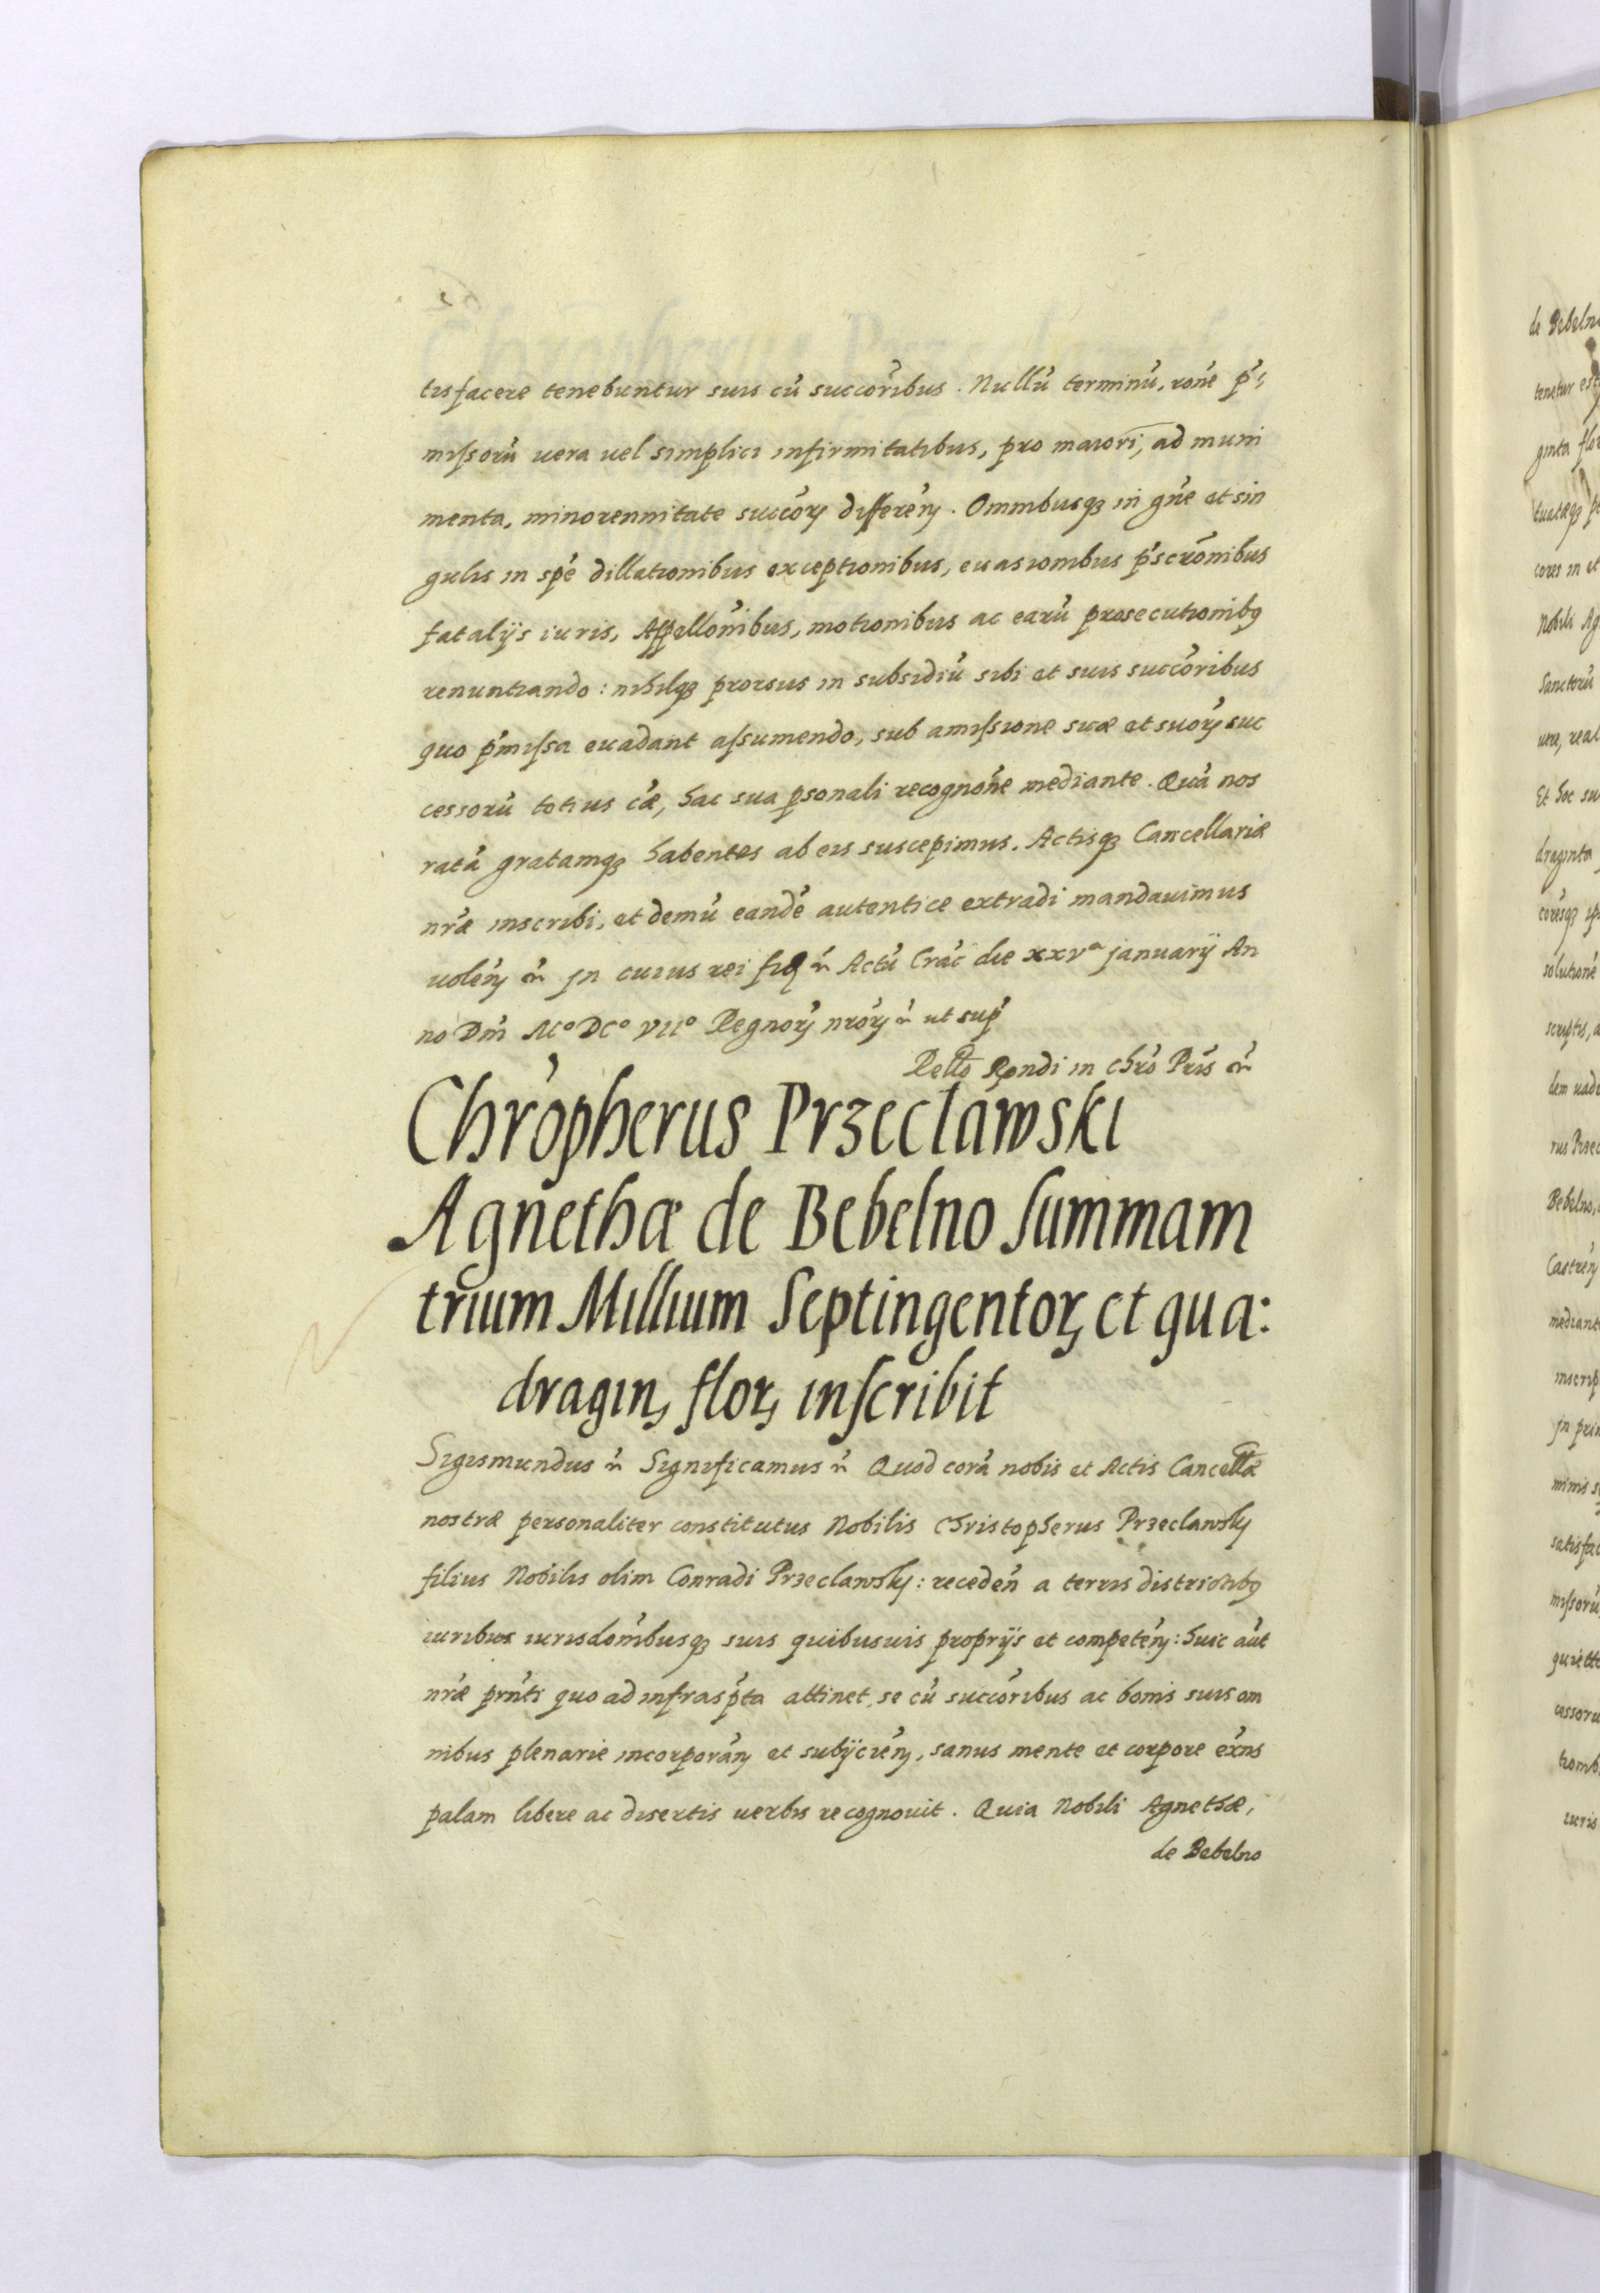 tisfacere tenebuntur suis cũ succoribus. Nullũ terminũ, rone p̃:
missorũ vera vel simplici infirmitatibus, pro maiori, ad muni
menta, minorennitate succorꝝ differen. Omnibusqꝫ in gñe et sin
gulis in spẽ dillationibus exceptionibus, evasionibus p̃scronibus
fatalijs iuris, Appellonibus, motionibus ac earũ prosecutionibꝰ
renuntiando: nihilqꝫ prorsus in subsidiũ sibi et suis succoribus
quo p̃missa evadant assumendo, sub amissione suæ et suorꝝ suc
cessorũ totius cæ, hac sua ꝑsonali recognone mediante. Quã nos
ratã gratamqꝫ habentes ab eis suscepimus. Actisqꝫ Cancellariæ
nræ inscribi, et demũ eandẽ autentice extradi mandavimus
volen etc̃ Jn cuius rei fid etc̃ Actũ Crac die xxvᵃ januarij An
no Dnĩ Mᵒ DCᵒ VIIᵒ Regnorꝝ nrorꝝ etc̃ ut sup̃
Rello Rendi in Chro Pris etc̃
Chropherus Przecławski
Agnethæ de Bebelno Summam
trium Millium Septingentorꝝ et qua:
dragin, florꝝ inscribit
Sigismundus etc̃ Significamus etc̃ Quod corã nobis et Actis Cancellæ
nostræ personaliter constitutus Nobilis Christopherus Przeclawsky
filius Nobilis olim Conradi Przeclawsky: receden a terris districtibꝰ
iuribus iurisdonibusqꝫ suis quibusvis proprijs et competen: huic aũt
nræ prnti quo ad infrasp̃ta attinet, se cũ succoribus ac bonis suis om
nibus plenarie incorporan et subijcien, sanus mente et corpore exns
palam libere ac disertis verbis recognovit. Quia Nobili Agnethæ,
de Bebelno
de Bebelno
tenetur
ginta flor
cores in et
Nobili Ag
Sanctorũ
Et hoc su
draginta
coresqꝫ
solutionẽ
scriptis,
dem vad
rus Przec
Bebelno,
Castren
mediant
inscrip
satisfac
missorũ
cessoru
iuris